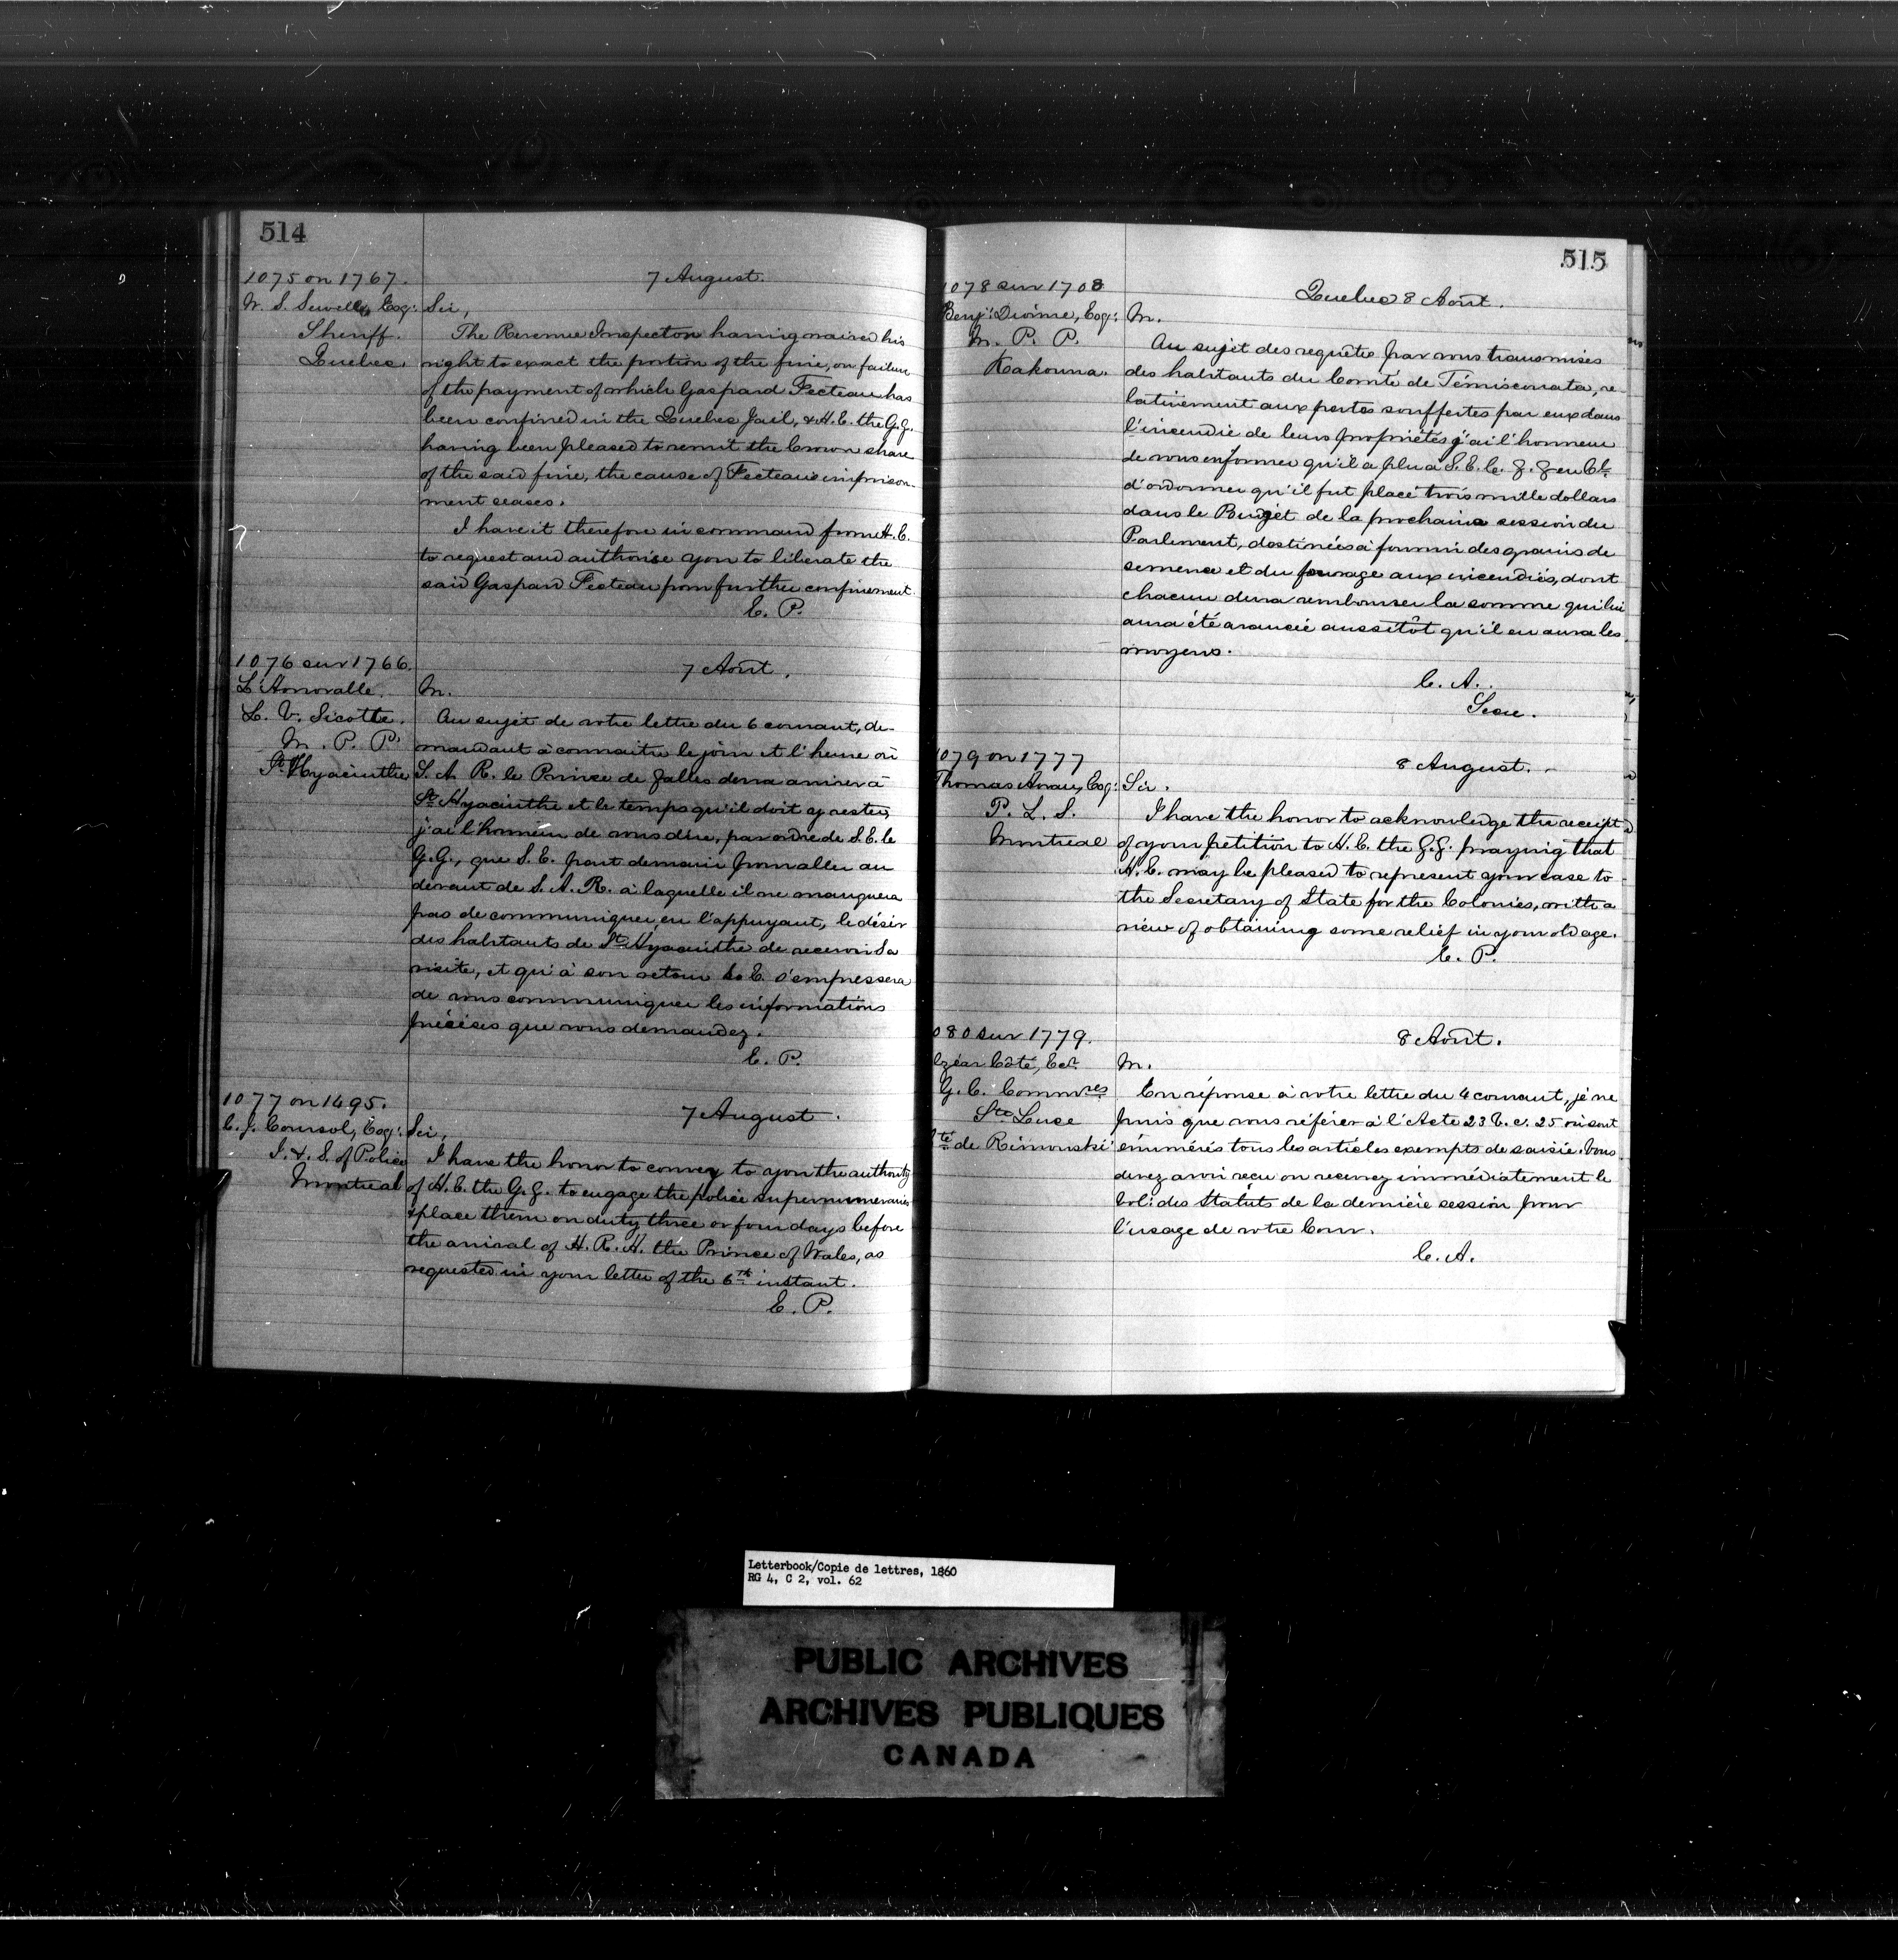 514
1075 on 1767.
W. S. Sewell, Esq:
Sheriff.
Quebec.
7 August.
Sir,
The Revenue Inspector having waived his
right to exact the portion of the fine, on failure
of the payment of which Gaspard Fecteau has
been confined in the Quebec Jail, & H. E. the G. G.
having been pleased to remit the Crown share
of the said fine, the cause of Fecteau's imprison-
ment ceases.
I have it therefore in command from H. E.
to request and authorise you to liberate the
said Gaspard Fecteau from further confinement.
E. P.
1076 sur 1766.
L'Honorable
L. V. Sicotte.
M. P. P.
St Hyacinthe
7 Août.
M.
Au sujet de votre lettre du 6 courant, de-
mandant à connaitre le jour et l'heure où
S. A. R. le Prince de Galles devra arriver à
St Hyacinthe et le temps qu'il doit y rester,
j'ai l'honneur de vous dire, par ordre de S. E. le
G. G., que S. E. part demain pour aller au
devant de S. A. R. à laquelle il ne manquera
pas de communiquer en l'appuyant, le désir
des habitants de St Hyacinthe de recevoir Sa
visite, et qu'à son retour S. E. s'empressera
de vous communiquer les informations
précises que vous demandez.
E. P.
1077 on 1495.
C. J. Coursol, Esq:
I. & S. of Police
Montreal
7 August.
Sir,
I have the honor to convey to you the authority
of H. E. the G. G. to engage the police supernumeraries
& place them on duty three or four days before
the arrival of H. R. H. the Prince of Wales, as
requested in your letter of the 6th instant.
E. P.
515
1078 sur 1708
Benj: Dionne, Esq:
M. P. P.
Kakouna.
Quebec 8 Août.
M.
Au sujet des requêtes par vous transmises
des habitants du Comté de Témisconata, re-
lativement aux pertes souffertes par eux dans
l'incendie de leurs propriétés j'ai l'honneur
de vous informer qu'il a plu à S. E. le G. G. en Cl
d'ordonner qu'il fut placé trois mille dollars
dans le Budget de la prochaine session du
Parlement, destinées à fournir des grains de
semence et du fourage aux incendiés, dont
chacun devra rembourser la somme qui lui
aura été avancée aussitôt qu'il en aura les
moyens.
C. A.
Secre.
1079 on 1777
Thomas Esq:
P. L. S.
Montreal
8 August.
Sir.
I have the honor to acknowledge the receipt
of your petition to H. E. the G. G. praying that
H. E. may be pleased to represent your case to
the Secretary of State for the Colonies, with a
view of obtaining some relief in your old age.
E. P.
080 sur 1779.
lzéar Côté, Ecr
G. C. Commres
Ste Luce
té de Rimouski
8 Août.
M.
En réponse à votre lettre du 4 courant, je ne
puis que vous référer à l'Acte 23 V. c. 25 où sont
énumérés tous les articles exempts de saisie. Vous
devez avoir reçu ou recevrez immédiatement le
Vol: des Statuts de la dernière session pour
l'usage de votre Cour.
C. A.
Letterbook/Copie de lettres, 1860
RG 4, C 2, vol. 62
PUBLIC ARCHIVES
ARCHIVES PUBLIQUES
CANADA